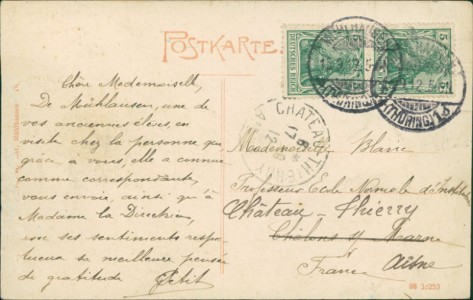 POSTKARTE
DEUTSCHES REICH
5
5
MÜHLHAUSEN
(THÜRING) 1
(THÜRING) 1
CHATEAU-THIERRY
17
12
Chère Mademoiselle,
De Mühlhausen, une de
vos anciennes élèves, en
visite chez la personne que
grâce à vous, elle a connue
comme correspondante, vous
envoie, ainsi qu'à
Madame la Directrice
ses sentiments respec
tueux sa meilleure pensée
de gratitude
Petit
Mademoiselle Blanc
Professeur Ecole Normale d'Institut
Château-Thierry
Châlons s/ Marne
France Aisne